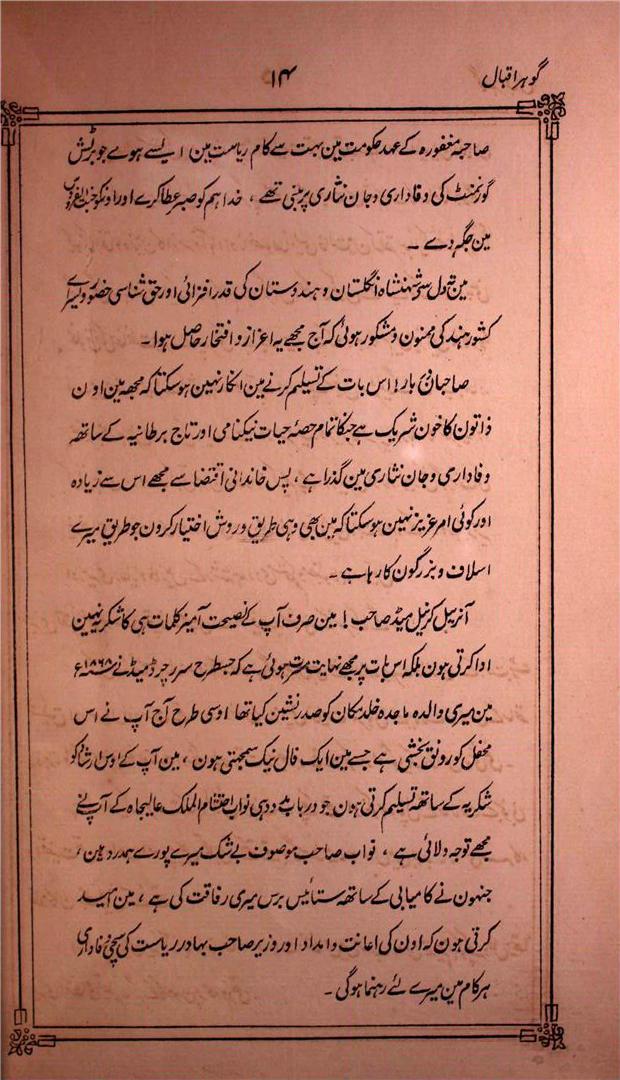 گوہر اقبال
۱۴
صاحبہ مغفورہ کے عہد حکومت مین بہت سے کام ریاست مین ایسے ہوے جو برٹش
گورنمنٹ کی وفاداری وجان نثاری پر مبنی تھے ، خدا ہم کو صبر عطا کرے اور اونکو جنت الفردوس
مین جگہ دے ۔
مین تہ دل سے شہنشاہ انگلستان و ہندوستان کی قدر افزائی اور حق شناسی حضور ویسراے
کشور ہند کی ممنون و مشکور ہوئی کہ آج مجھے یہ اعزاز و افتخار حاصل ہوا ۔
صاحبان دربار! اس بات کے تسلیم کرنے مین انکار نہین ہوسکتا کہ مجھ مین اون
ذاتون کا خون شریک ہے جنکا تمام حصۂ حیات نیکنامی اور تاج برطانیہ کے ساتھ
وفاداری وجان نثاری مین گذرا ہے ، پس خاندانی اقتضا سے مجھے اس سے زیادہ
اور کوئی امر عزیز نہین ہوسکتا کہ مین بھی وہی طریق وروش اختیار کرون جو طریق میرے
اسلاف و بزرگون کا رہا ہے ۔
آنریبل کرنیل میڈ صاحب ! مین صرف آپ کے نصیحت آمیز کلمات ہی کا شکریہ نہین
ادا کرتی ہون بلکہ اس بات پر مجھے نہایت مسرت ہوئی ہے کہ جسطرح سر رچرڈ میڈ نے سنہ ۱۸۶۸ء
مین میری والدہ ماجدہ خلد مکان کو صدر نشین کیا تھا اوسی طرح آج آپ نے اس
محفل کو رونق بخشی ہے جسے مین ایک فال نیک سمجھتی ہون ، مین آپ کے اوس ارشاد کو
شکریہ کے ساتھ تسلیم کرتی ہون جو دربارہ مدد دہی نواب احتشام الملک عالیجاہ کے آپ نے
مجھے توجہ دلائی ہے ، نواب صاحب موصوف بے شک میرے پورے ہمدرد ہین ،
جنہون نے کامیابی کے ساتھ ستائیس برس میری رفاقت کی ہے ، مین امید
کرتی ہون کہ اون کی اعانت وامداد اور وزیر صاحب بہادر ریاست کی سچی وفاداری
ہر کام مین میرے لئے رہنما ہوگی ۔